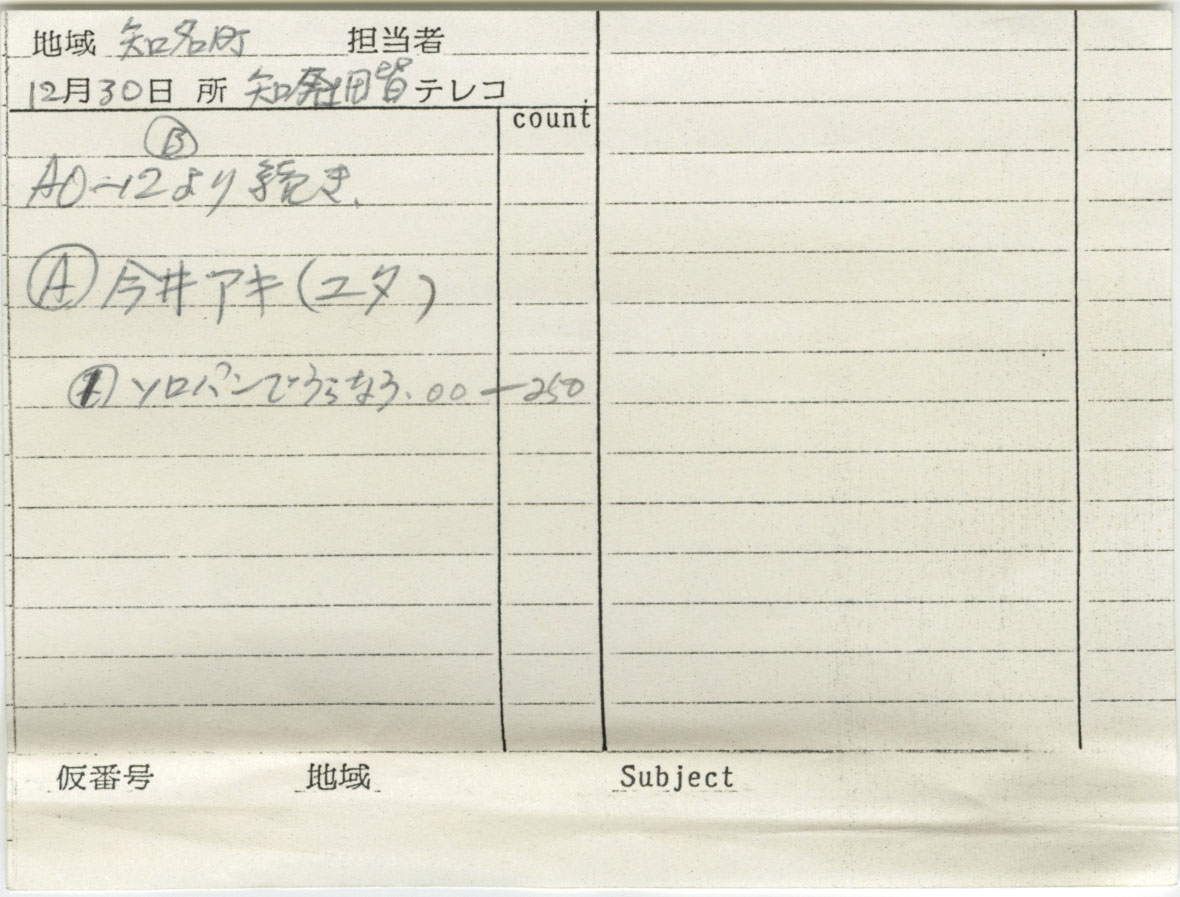 地域 知名町 担当者
12月30日 所 知名町田皆 テレコ
count
Ⓑ
AO-12より続き、
Ⓐ 今井アキ(ユタ)
① ソロバンでうらなう、00-250
仮番号 地域 Subject